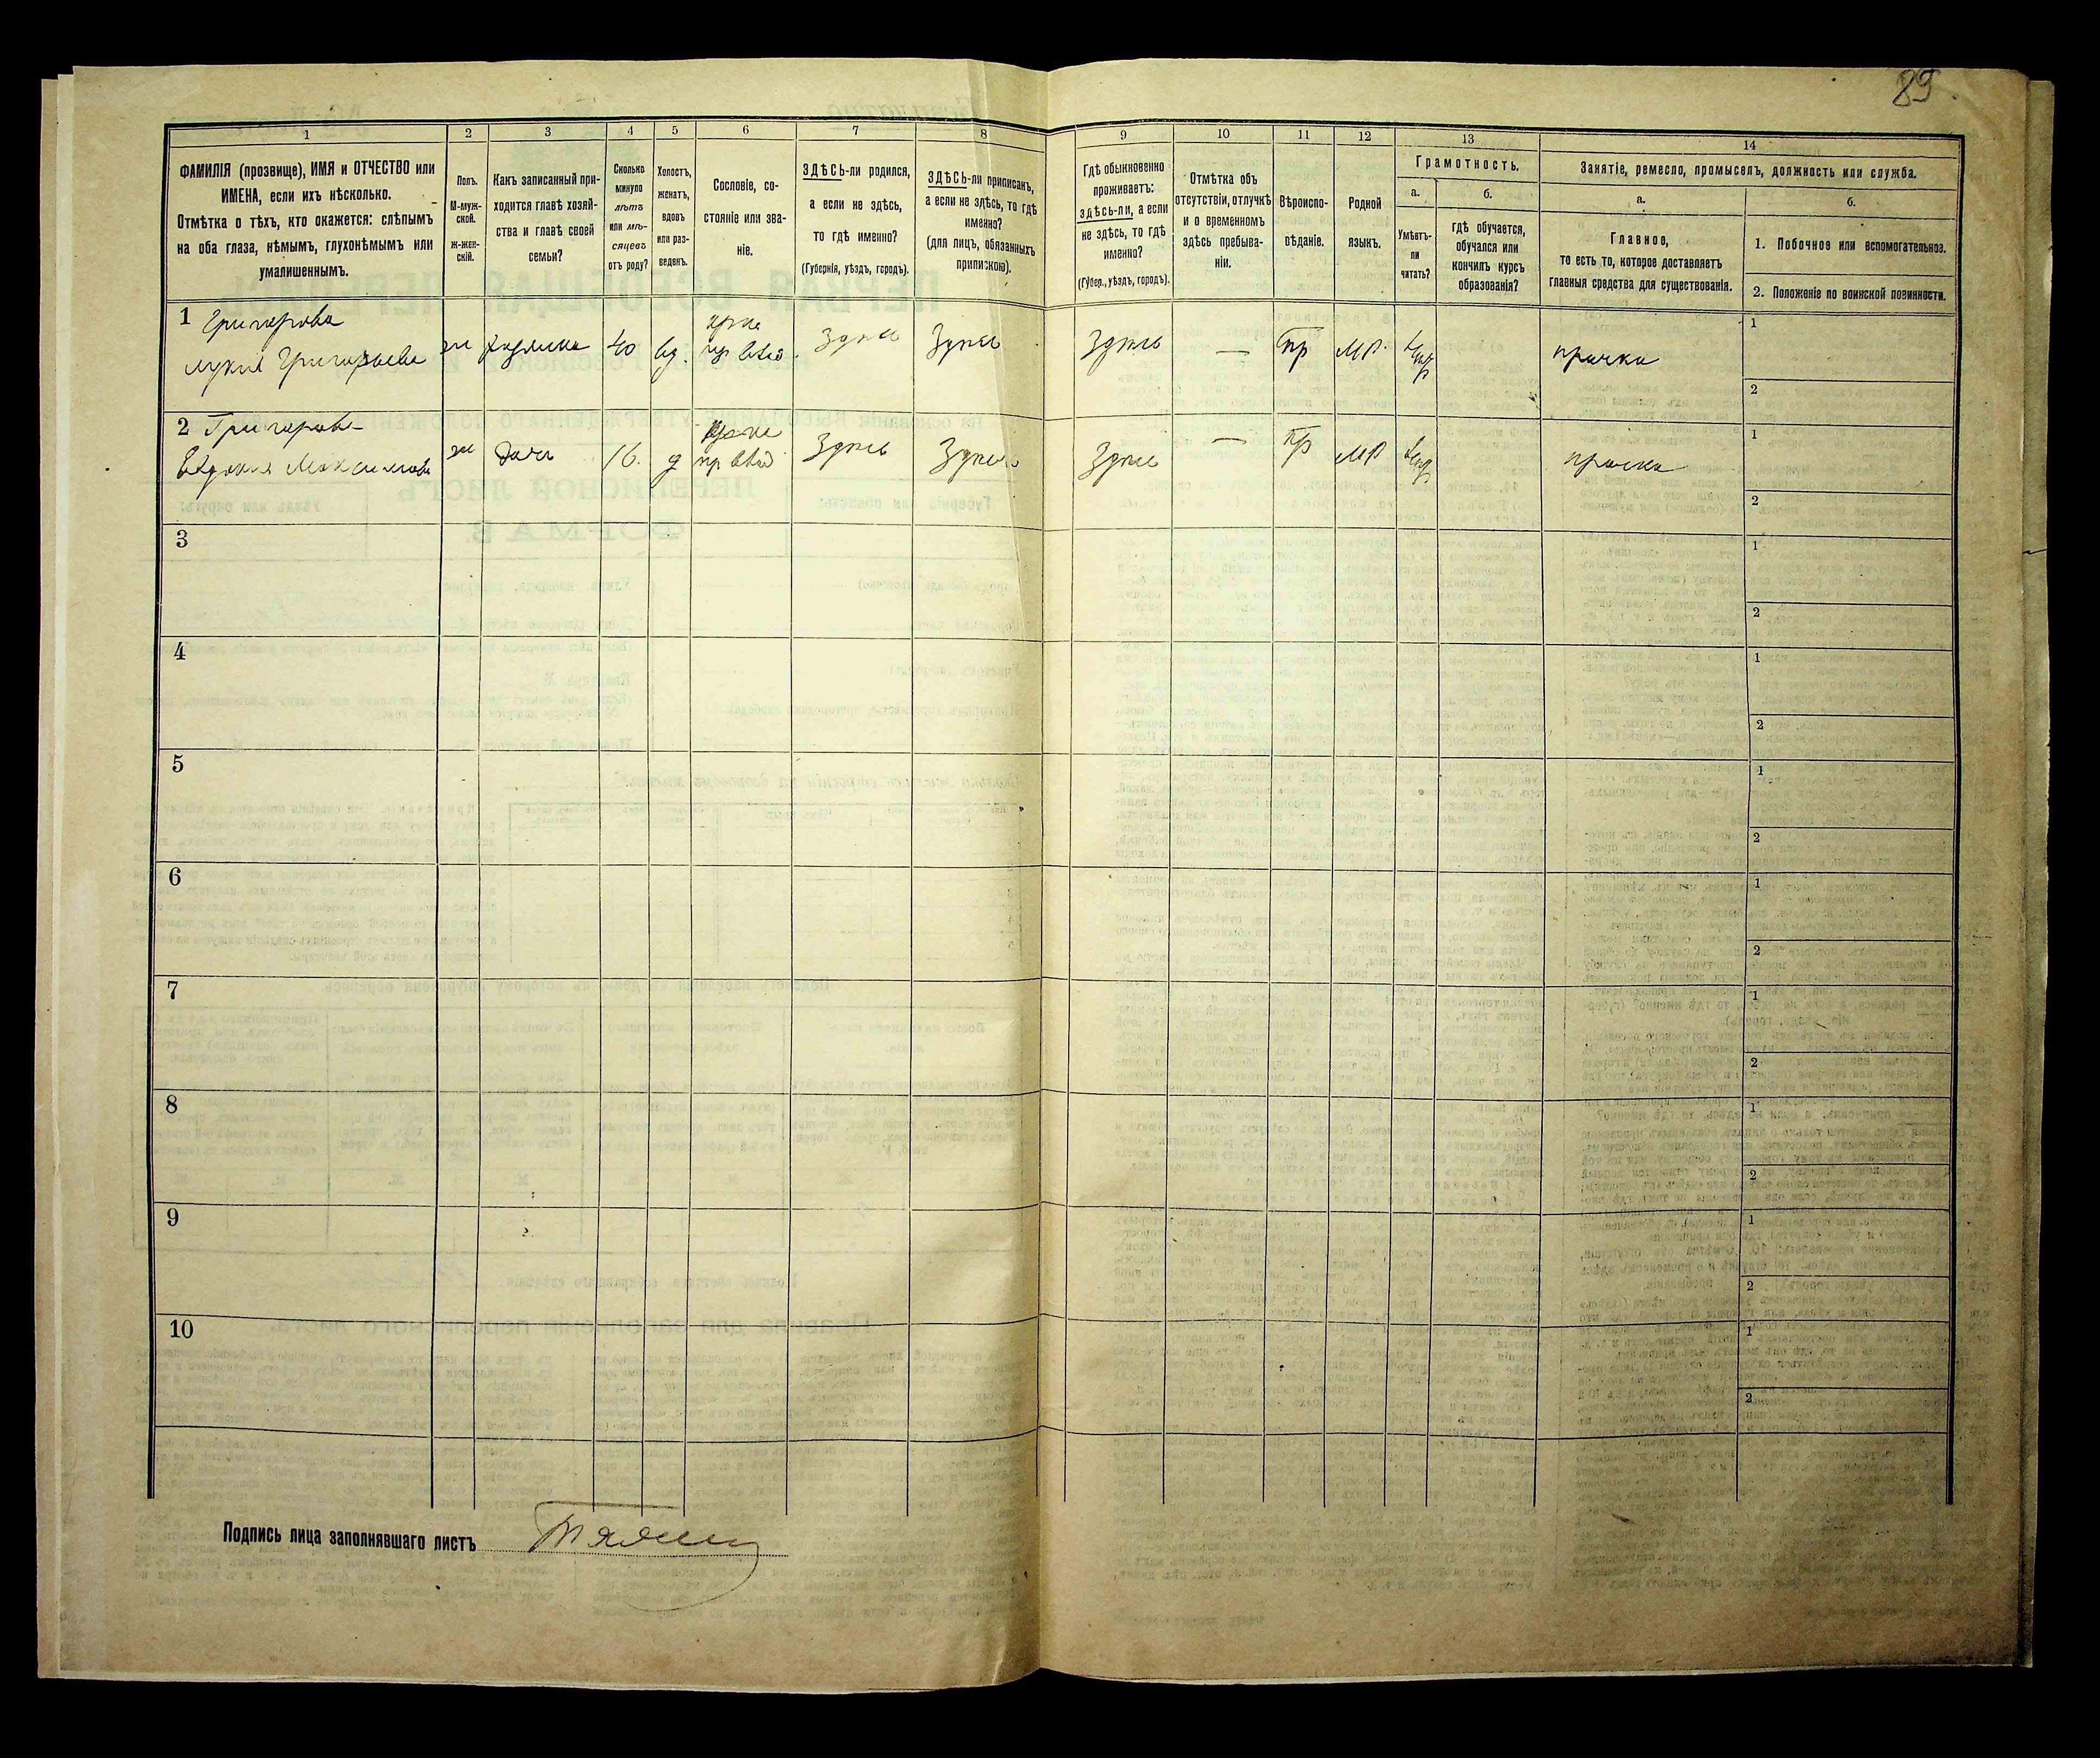 89
1
2
3
4
5
6
7
8
9
10
11
12
13
14
ФАМИЛІЯ (прозвище), ИМЯ и ОТЧЕСТВО или
ИМЕНА, если ихъ нѣсколько.
Отмѣтка о тѣхъ, кто окажется: слѣпымъ
на оба глаза, нѣмымъ, глухонѣмымъ или
умалишеннымъ.
Полъ.
М-муж-
ской.
Ж-жен-
скій.
Какъ записанный при-
ходится главѣ хозяй-
ства и главѣ своей
семьи?
Сколько
минуло
лѣтъ
или мѣ-
сяцевъ
отъ роду?
Холостъ,
женатъ,
вдовъ
или раз-
веденъ.
Сословіе, со-
стояніе или зва-
ніе.
ЗДѢСЬ-ли родился,
а если не здѣсь,
то гдѣ именно?
(Губернія, уѣздъ, городъ).
ЗДѢСЬ-ли приписанъ,
а если не здѣсь, то гдѣ
именно?
(для лицъ, обязанныхъ
припискою).
Гдѣ обыкновенно
проживаетъ:
здѣсь-ли, а если
не здѣсь, то гдѣ
именно?
(Губер., уѣздъ, городъ).
Отмѣтка объ
отсутствіи, отлучкѣ
и о временномъ
здѣсь пребыва-
ніи.
Вѣроиспо-
вѣданіе.
Родной
языкъ.
Грамотность.
а.
Умѣетъ-
ли
читать?
б.
гдѣ обучается,
обучался или
кончилъ курсъ
образованія?
Занятіе, ремесло, промыселъ, должность или служба.
а.
Главное,
то есть то, которое доставляетъ
главныя средства для существованія.
б.
1. Побочное или вспомогательное.
2. Положеніе по воинской повинности.
1 Григорова
Григорьева
ж
хозяйка
40
вд.
здѣсь
здѣсь
здѣсь
—
пр
МР.
прачка
1
2
2 Григорова
Евдокия Максимова
ж
дочь
16.
д
здѣсь
здѣсь
здѣсь
—
пр
МР
прачка
1
2
3
1
2
4
1
2
5
1
2
6
1
2
7
1
2
8
1
2
9
1
2
10
1
2
Подпись лица заполнявшаго листъ